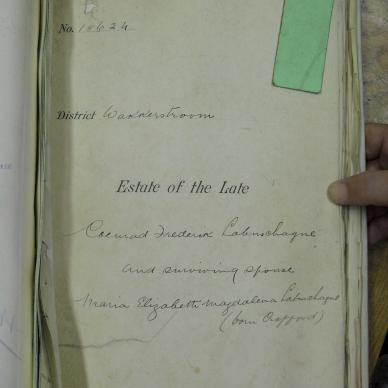 No. 18624
District Wakkerstroom
Estate of the Late
Coenrad Frederik Labuschagne
and surviving spouse
Maria Elizabeth Magdalena Labuschagne
(born